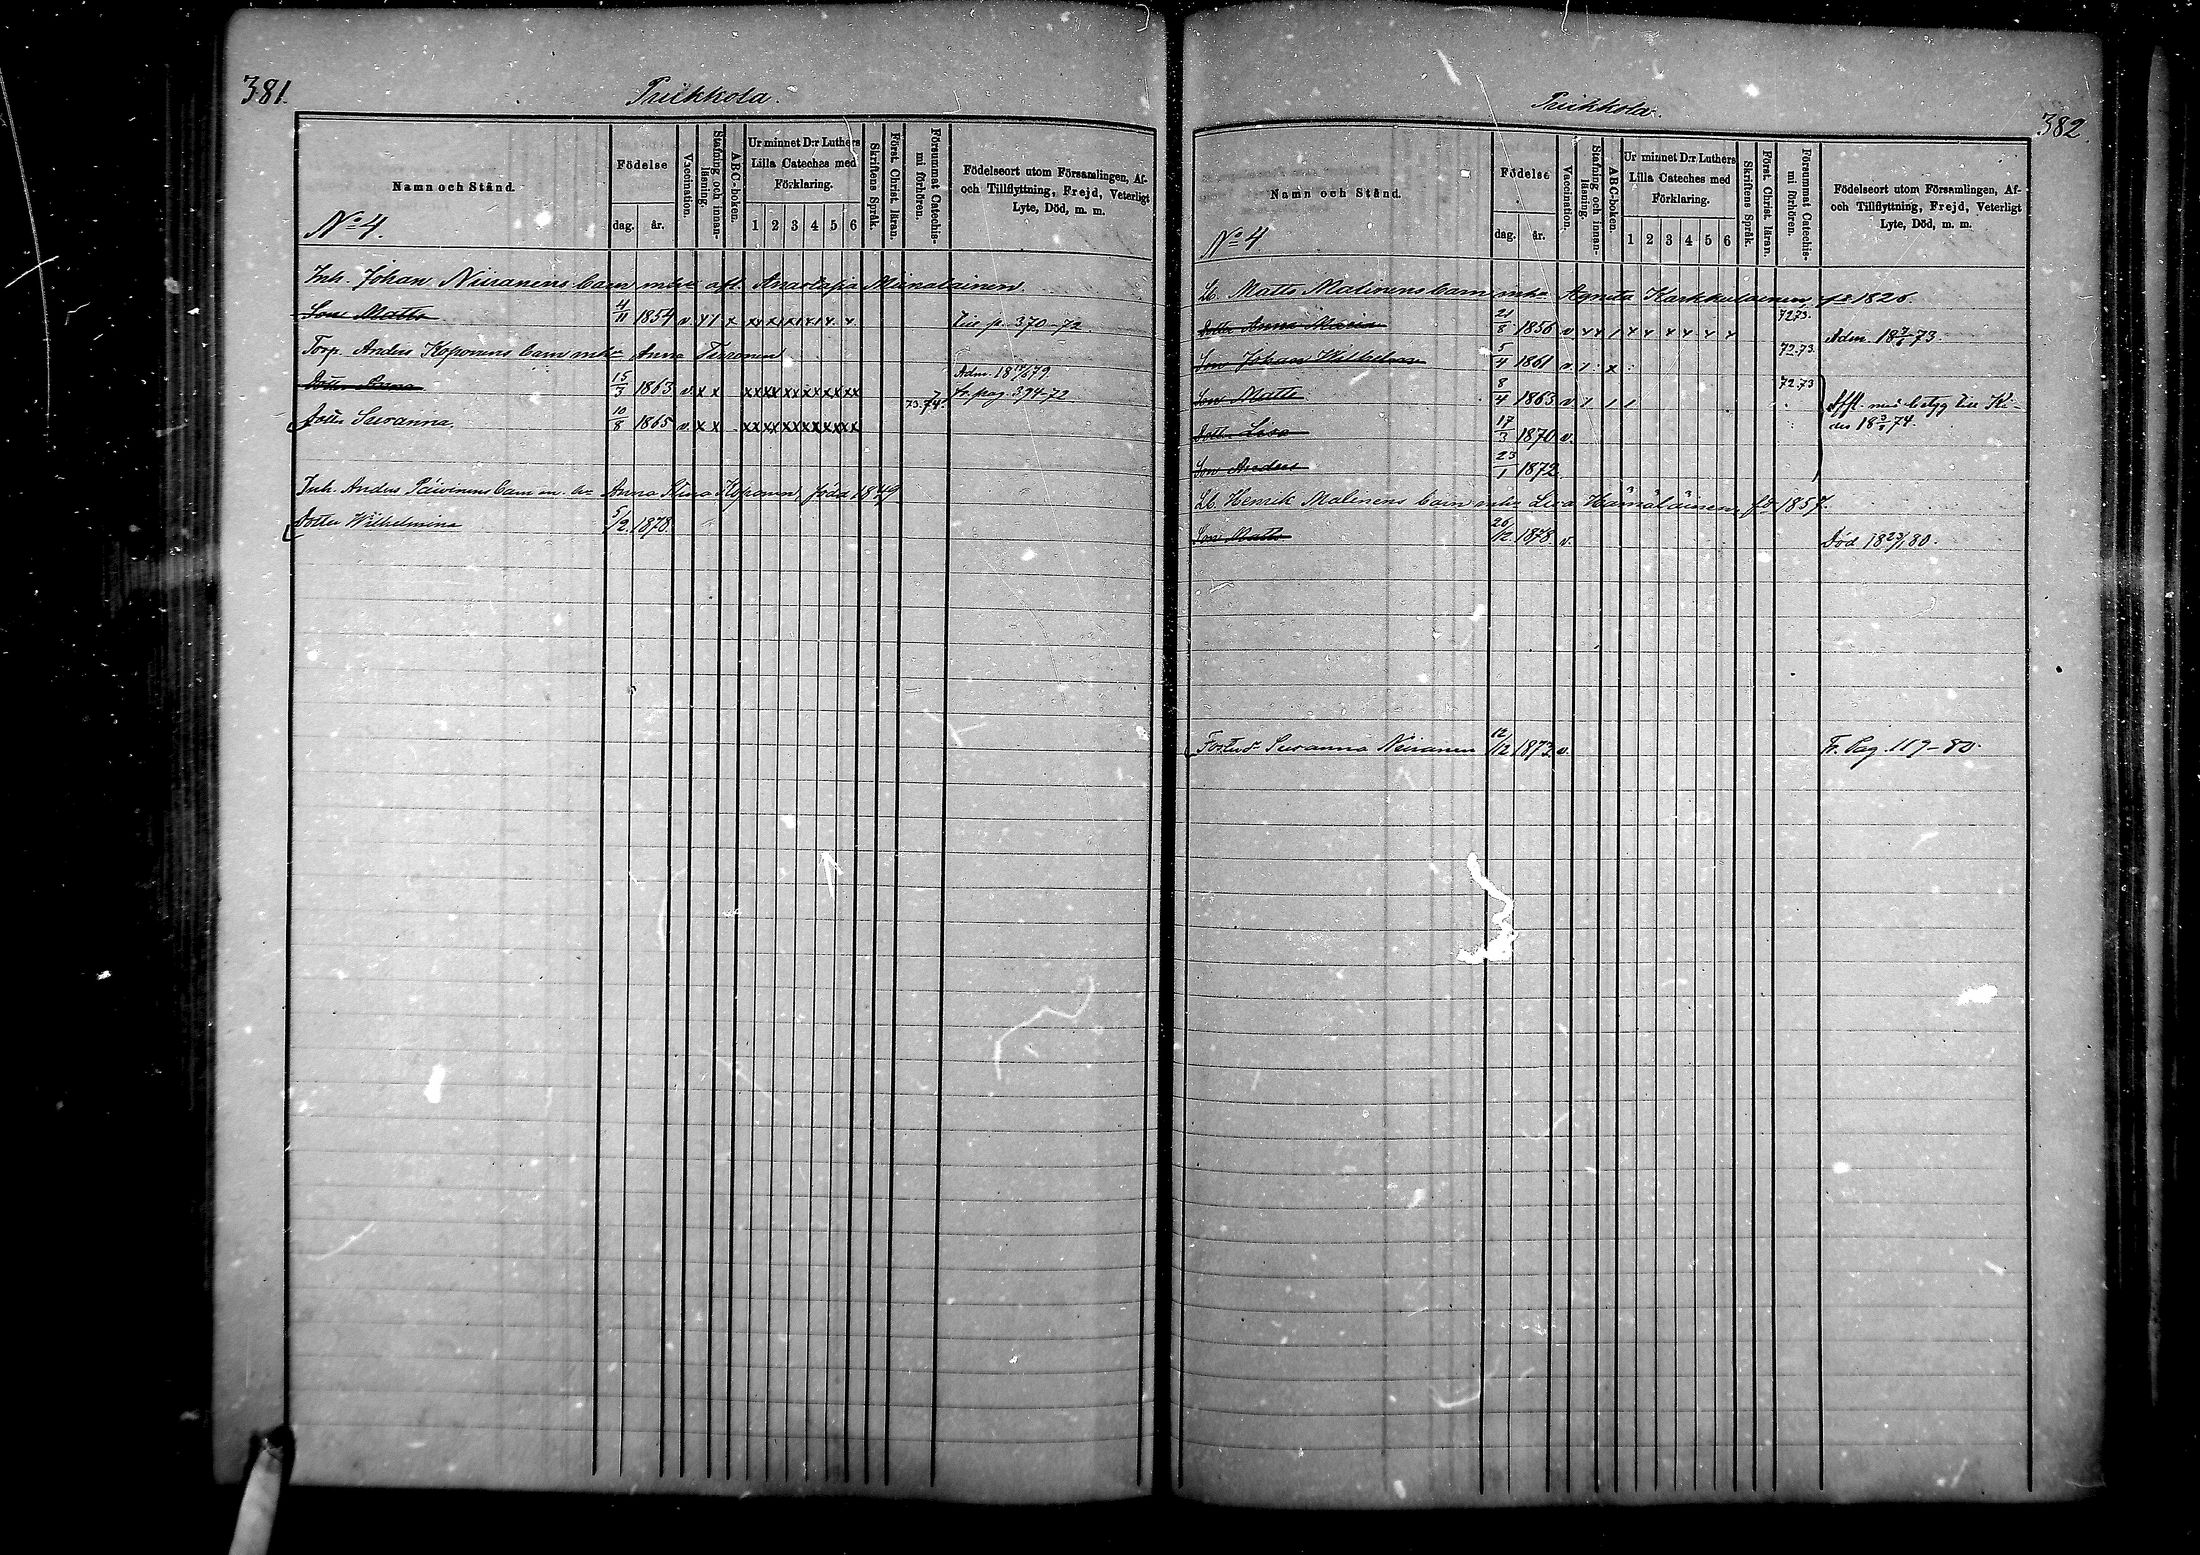 381.
Priikkola.
Namn och Stånd.
Födelse
dag.
år.
Vaccination.
Stafning och innan-
läsning.
ABC-boken.
Ur minnet D:r Luthers
Lilla Cateches med
Förklaring.
1 2 3 4 5 6
Skriftens Språk.
Först. Christ. läran.
Försummat Catechis-
mi förhören.
Födelseort utom Församlingen, Af-
och Tillflyttning, Frejd, Veterligt
Lyte, Död, m. m.
No 4.
Inh. Johan Niiranens barn m hu afl. Anastasia
Son Matts 4/11 1854 v. Till p. 370-72
Torp. Anders Koponens barn m hu Anna
Dotter Anna 15/3 1863 v. x x Adm. 79
fr. pag. 394-72
Dotter Susanna. 10/8 1865 v. x x 73. 74.
Inh. Anders Päivinens barn m. hu Anna Stina Koponen född 1849
Dotter Wilhelmina 5/2 1878
382.
Priikkola.
Namn och Stånd.
Födelse
dag.
år.
Vaccination.
Stafning och innan-
läsning.
ABC-boken.
Ur minnet D:r Luthers
Lilla Cateches med
Förklaring.
1 2 3 4 5 6
Skriftens Språk.
Först. Christ. läran.
Försummat Catechis-
mi förhören.
Födelseort utom Församlingen, Af-
och Tillflyttning, Frejd, Veterligt
Lyte, Död, m. m.
No 4
Lb. Matts Malinens barn m hu Agneta Karkkulainen fö 1826.
Dotter Anna Maria 21/8 1856 v. 72 73. Adm. 73
Son Johan Wilhelm 5/4 1861 v. 72. 73.
Son Matts 8/4 1863 v. 72.73 Affl. med betyg till Ki-
des 74.
Dotter Lisa 17/3 1870 v.
Son Anders 23/1 1872
Lb. Henrik Malinens barn m hu Lisa Hämäläinen fö 1857.
Son Matts 26/12 1878. v. Död 18 23/1 80.
Fosterdr Susanna Niiranen 12/12 1873 v. Fr. Pag. 119-80.